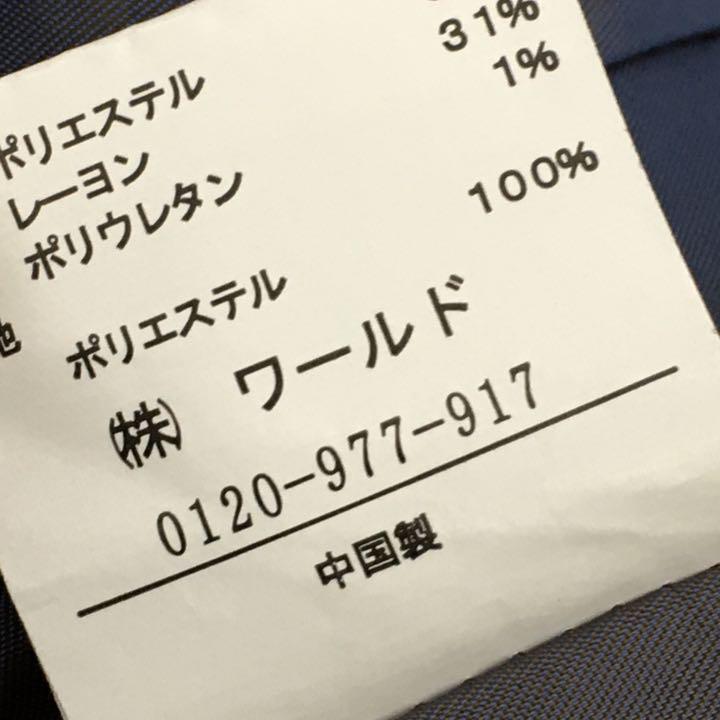 ポリエステル
レーヨン 31%
ポリウレタン 1%
地 ポリエステル 100%
㈱ ワールド
0120-977-917
中国製